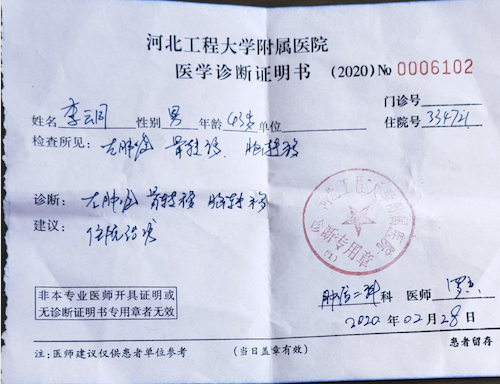 河北工程大学附属医院
医学诊断证明书 (2020)No 0006102
门诊号
姓名 李云同 性别 男 年龄 43岁 单位 住院号 334721
检查所见: 左肺癌 骨转移 脑转移
诊断: 左肺癌 骨转移 脑转移
建议: 住院
河北工程大学附属医院
诊断专用章
(1)
肿瘤二科 科 医师
非本专业医师开具证明或
无诊断证明书专用章者无效
2020 年 02 月 28 日
注:医师建议仅供患者单位参考 (当日盖章有效) 患者留存